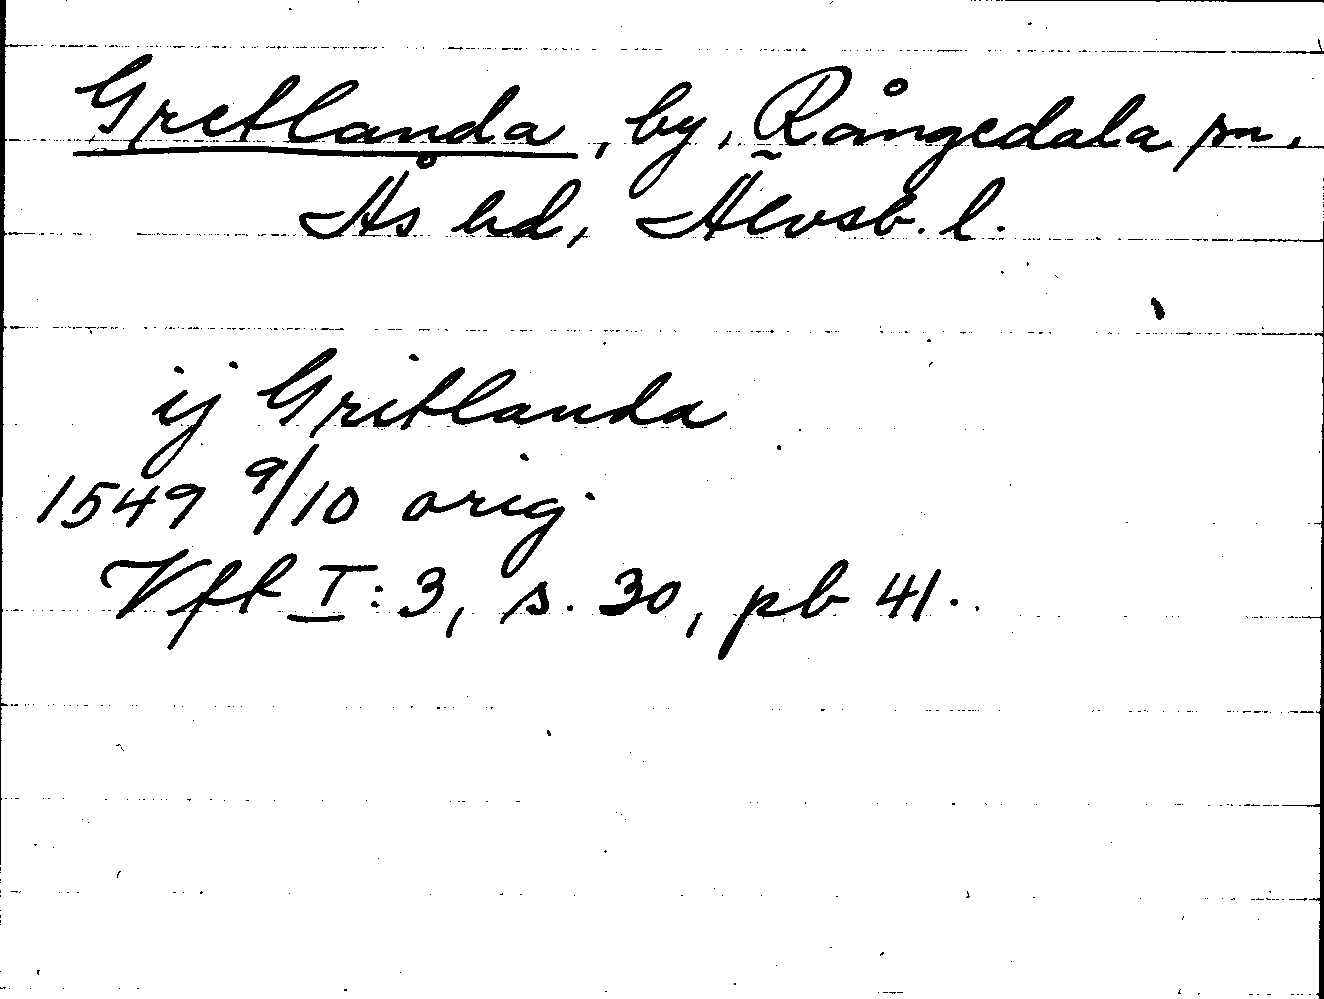 Gretlanda, by, Rångedala sn.
Ås hd, Älvsb. l.
ij Gritlanda
1549 9/10 orig.
Vft I:3, s. 30, pb 41.